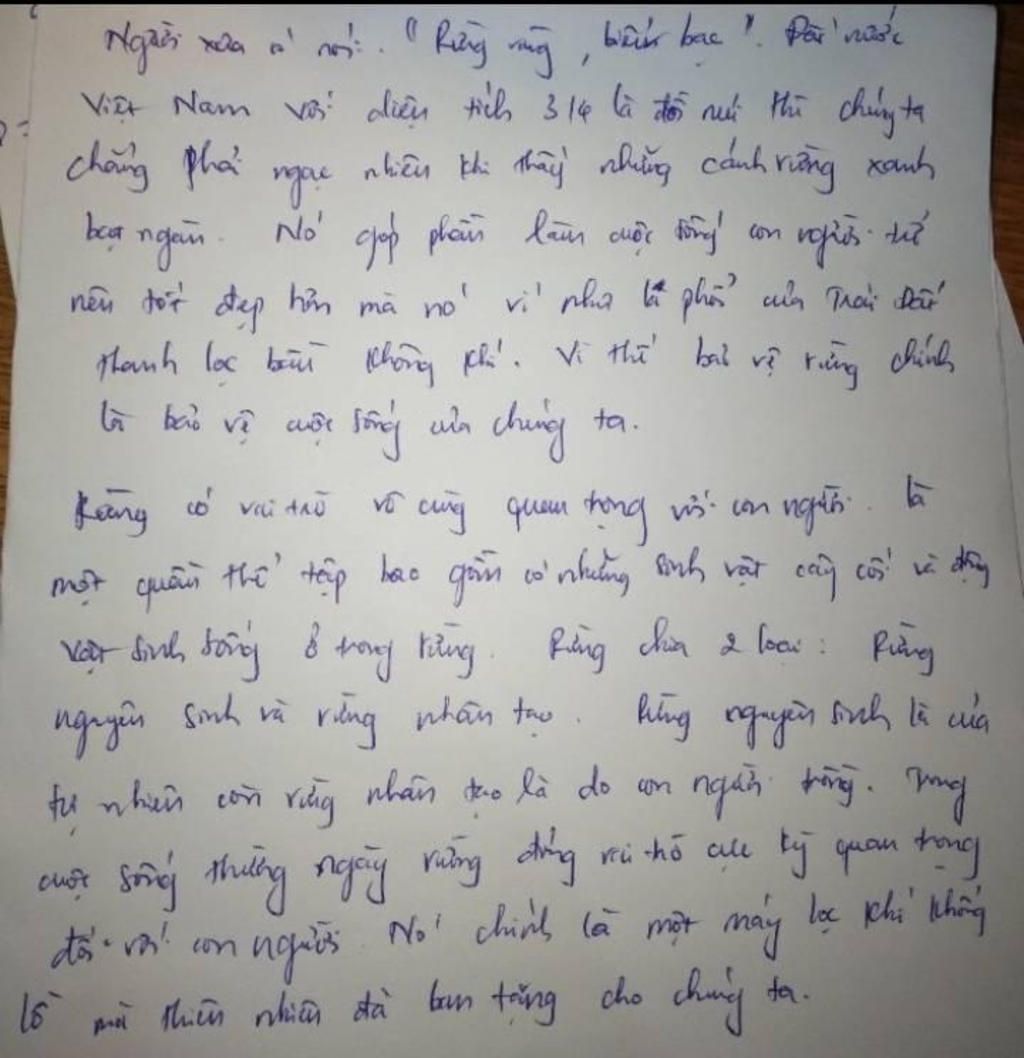 Người xưa có nói: "Rừng vàng, biển bạc". Đất nước
Việt Nam với diện tích 3/4 là đồi núi thì chúng ta
chẳng phải ngạc nhiên khi thấy những cánh rừng xanh
bạt ngàn. Nó góp phần làm cuộc sống con người trở
nên tốt đẹp hơn mà nó ví như lá phổi của Trái Đất
thanh lọc bầu không khí. Vì thế bảo vệ rừng chính
là bảo vệ cuộc sống của chúng ta.
Rừng có vai trò vô cùng quan trọng với con người. Là
một quần thể tập bao gồm có những sinh vật cây cối và động
vật sinh sống ở trong rừng. Rừng chia 2 loại: Rừng
nguyên sinh và rừng nhân tạo. Rừng nguyên sinh là của
tự nhiên còn rừng nhân tạo là do con người trồng. Trong
cuộc sống thường ngày rừng đóng vai trò cực kỳ quan trọng
đối với con người. Nó chính là một máy lọc khí khổng
lồ mà thiên nhiên đã ban tặng cho chúng ta.